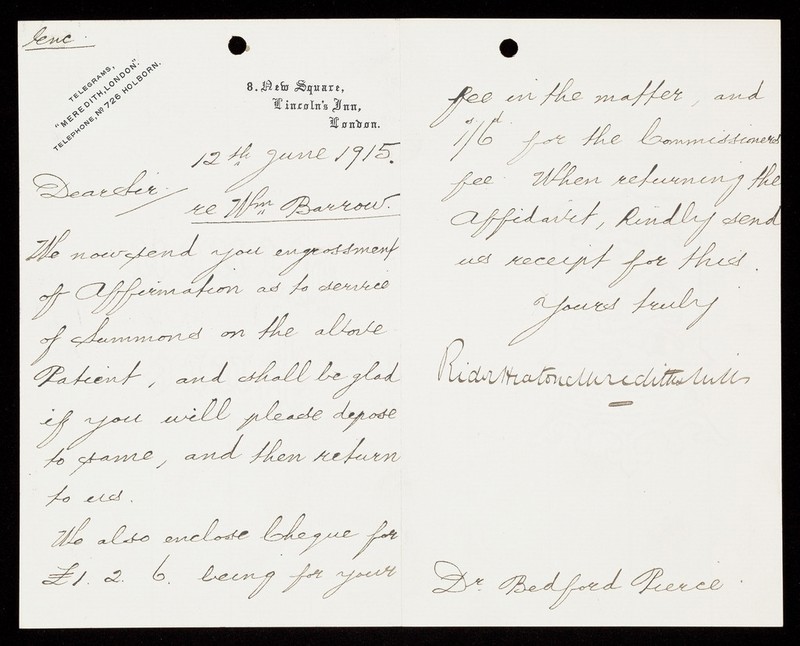 Enc.
TELEGRAMS,
"MEREDITH, LONDON."
TELEPHONE, No 726 HOLBORN.
8. New Square,
Lincoln's Inn,
London.
12th June 1915.
Dear Sir
re Wm Barrow.
We now send you engrossment
of Affirmation as to service
of Summons on the above
Patient, and shall be glad
if you will please depose
to same, and then return
to us.
We also enclose Cheque for
£1. 2. 6. being for your
fee in the matter, and
1s/6d for the Commissioners
fee. When returning the
Affidavit, kindly send
us receipt for this.
Yours truly
Rider Heaton Meredith & Mills
Dr. Bedford Pierce